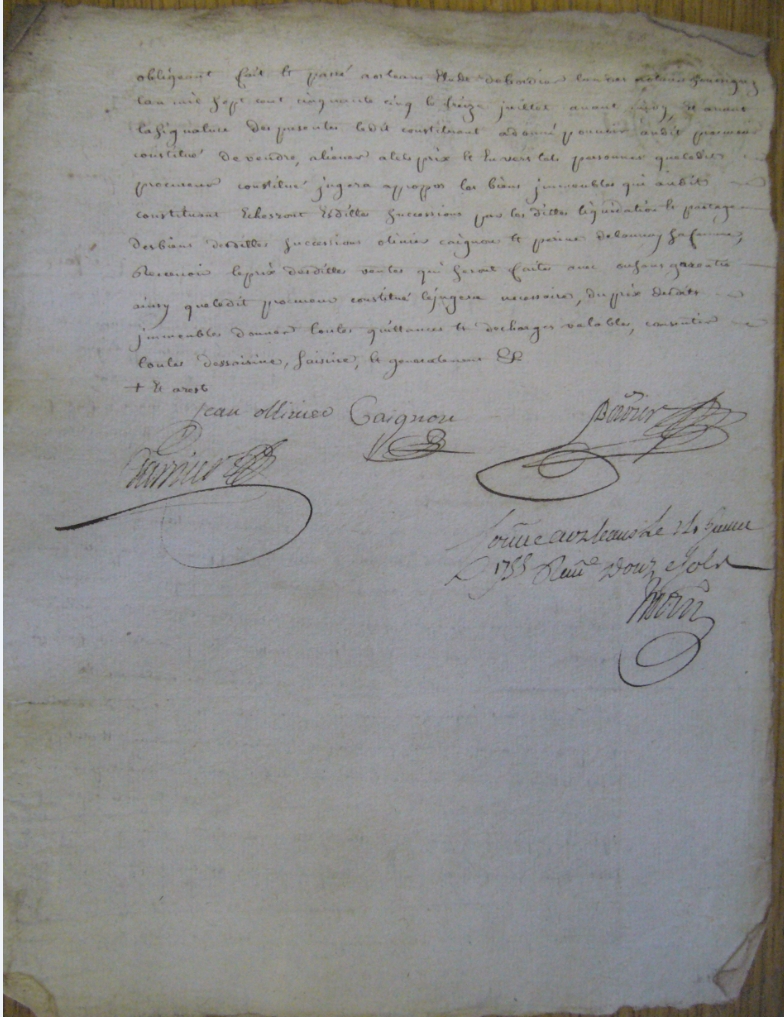 obligeant fait et passé a orleans Etude
Lan mil sept cent cinquante cinq le treize juillet avant midy, et avant
la signature des presentes ledit constituant a donné pouvoir audit procureur
constitué de vendre, aliener a tels prix et Envers tels personnes queledit
procureur constitué jugera appropos les biens immeubles qui audit
constituant Echesront Esdittes successions par les dittes liquidation et partage
des biens desdittes successions olivier caignou et perine delaunay sa femme,
Recevoir le prix desdittes ventes qui seront faites avec ou sans garentie
ainsy queledit procureur constitué le jugera necessaire, du prix desdits
immeubles donner toutes quittances et decharges valable, consentir
toutes dessaisine, saisine, et generalement &c
+ Et
jean ollivier Caignou
a orleans Le juillet
1755 Douze sols